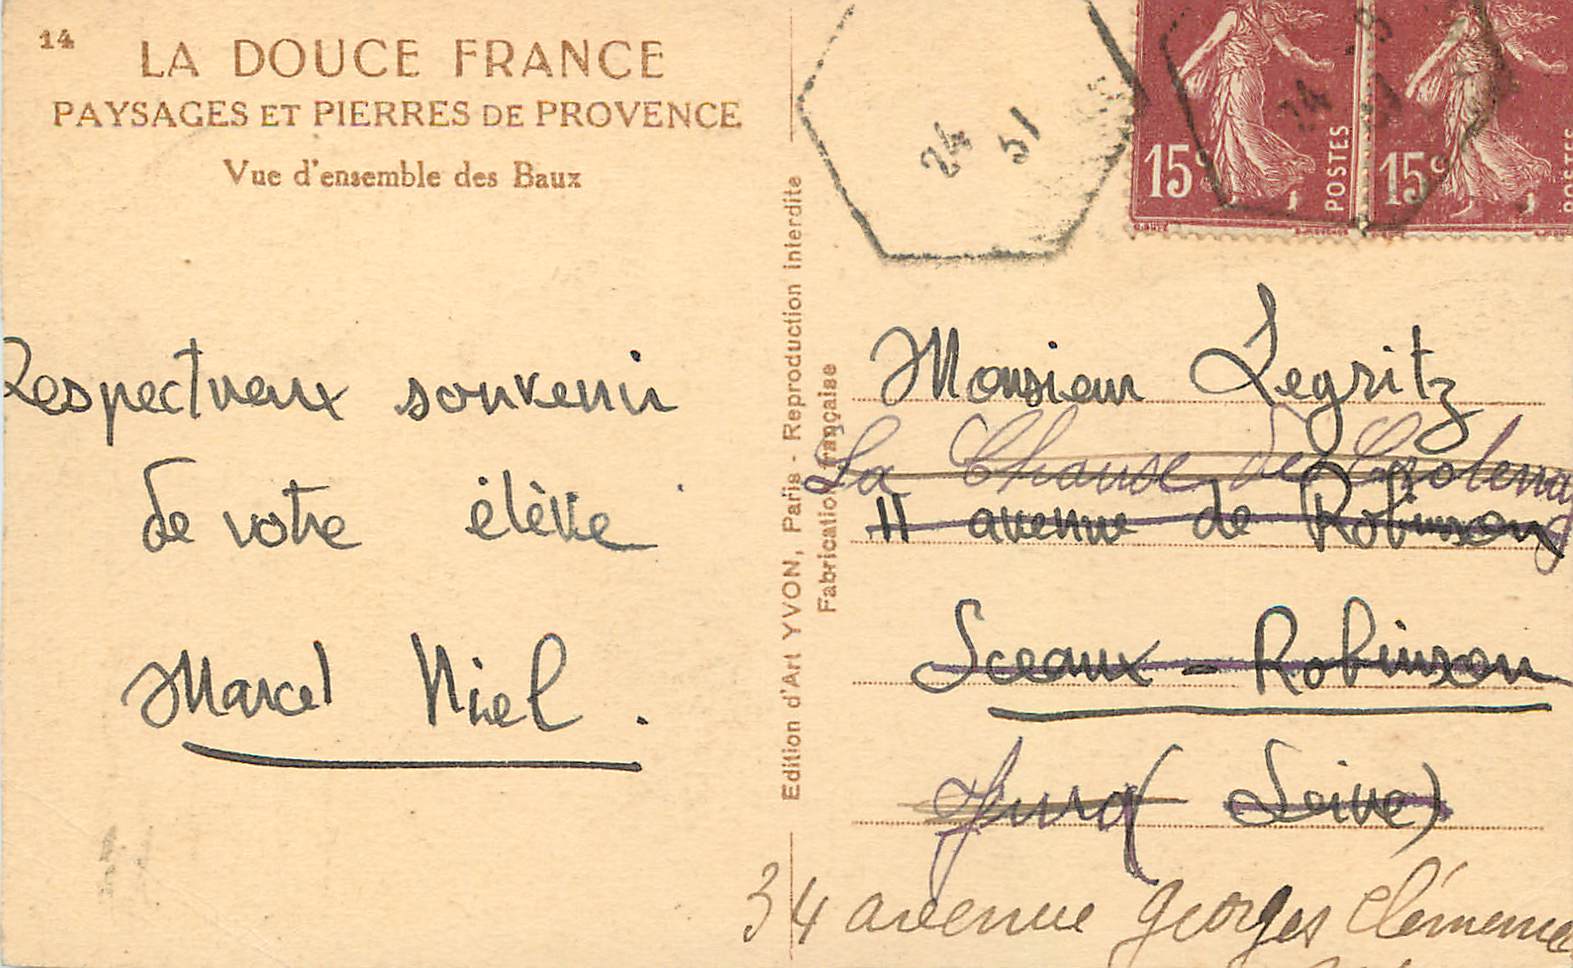 14
LA DOUCE FRANCE
PAYSAGES ET PIERRES DE PROVENCE
Vue d'ensemble des Baux
Respectueux souvenir
de votre élève
Marcel Niel.
Edition d'Art YVON, Paris - Reproduction interdite
Fabrication Française
24
51
15c POSTES
15c POSTES
Monsieur Legritz
La Chaux de Crotenay
11 avenue de Robinson
Sceaux - Robinson
Jura (Seine)
34 avenue Georges Clémence